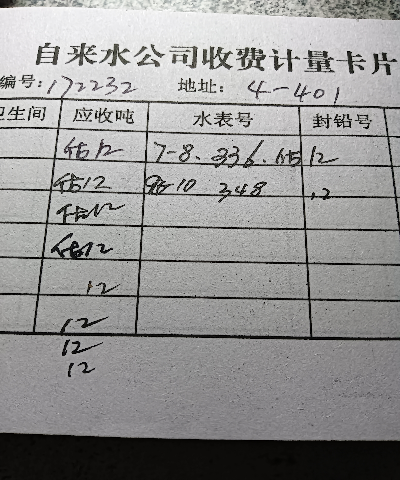 自来水公司收费计量卡片
编号:172232 地址: 4-401
卫生间 应收吨 水表号 封铅号
估12 7-8. 336. 估12
估12 10 348 12
估12
估12
12
12
12
12